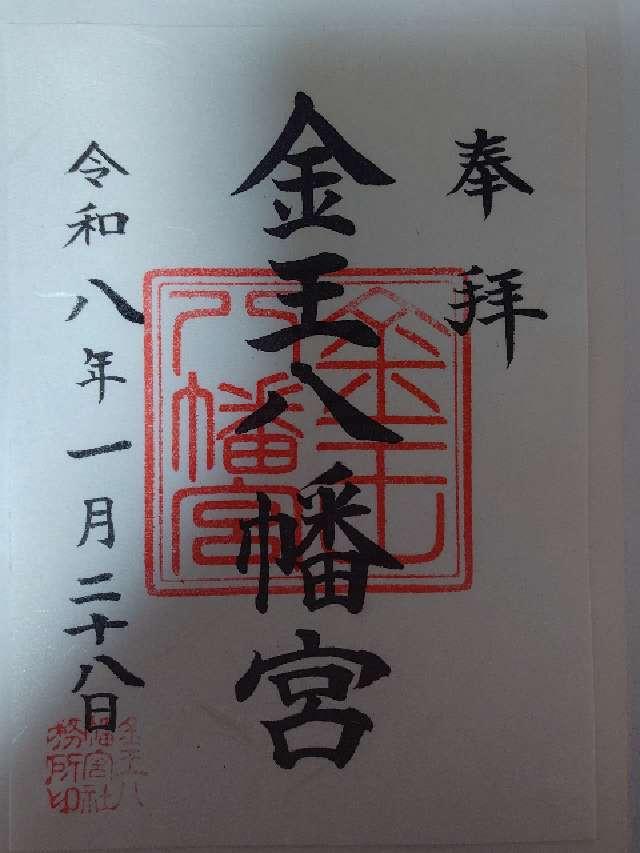 奉拝
金王八幡宮
金王八幡宮
令和八年一月二十八日
金王八
幡宮社
務所印